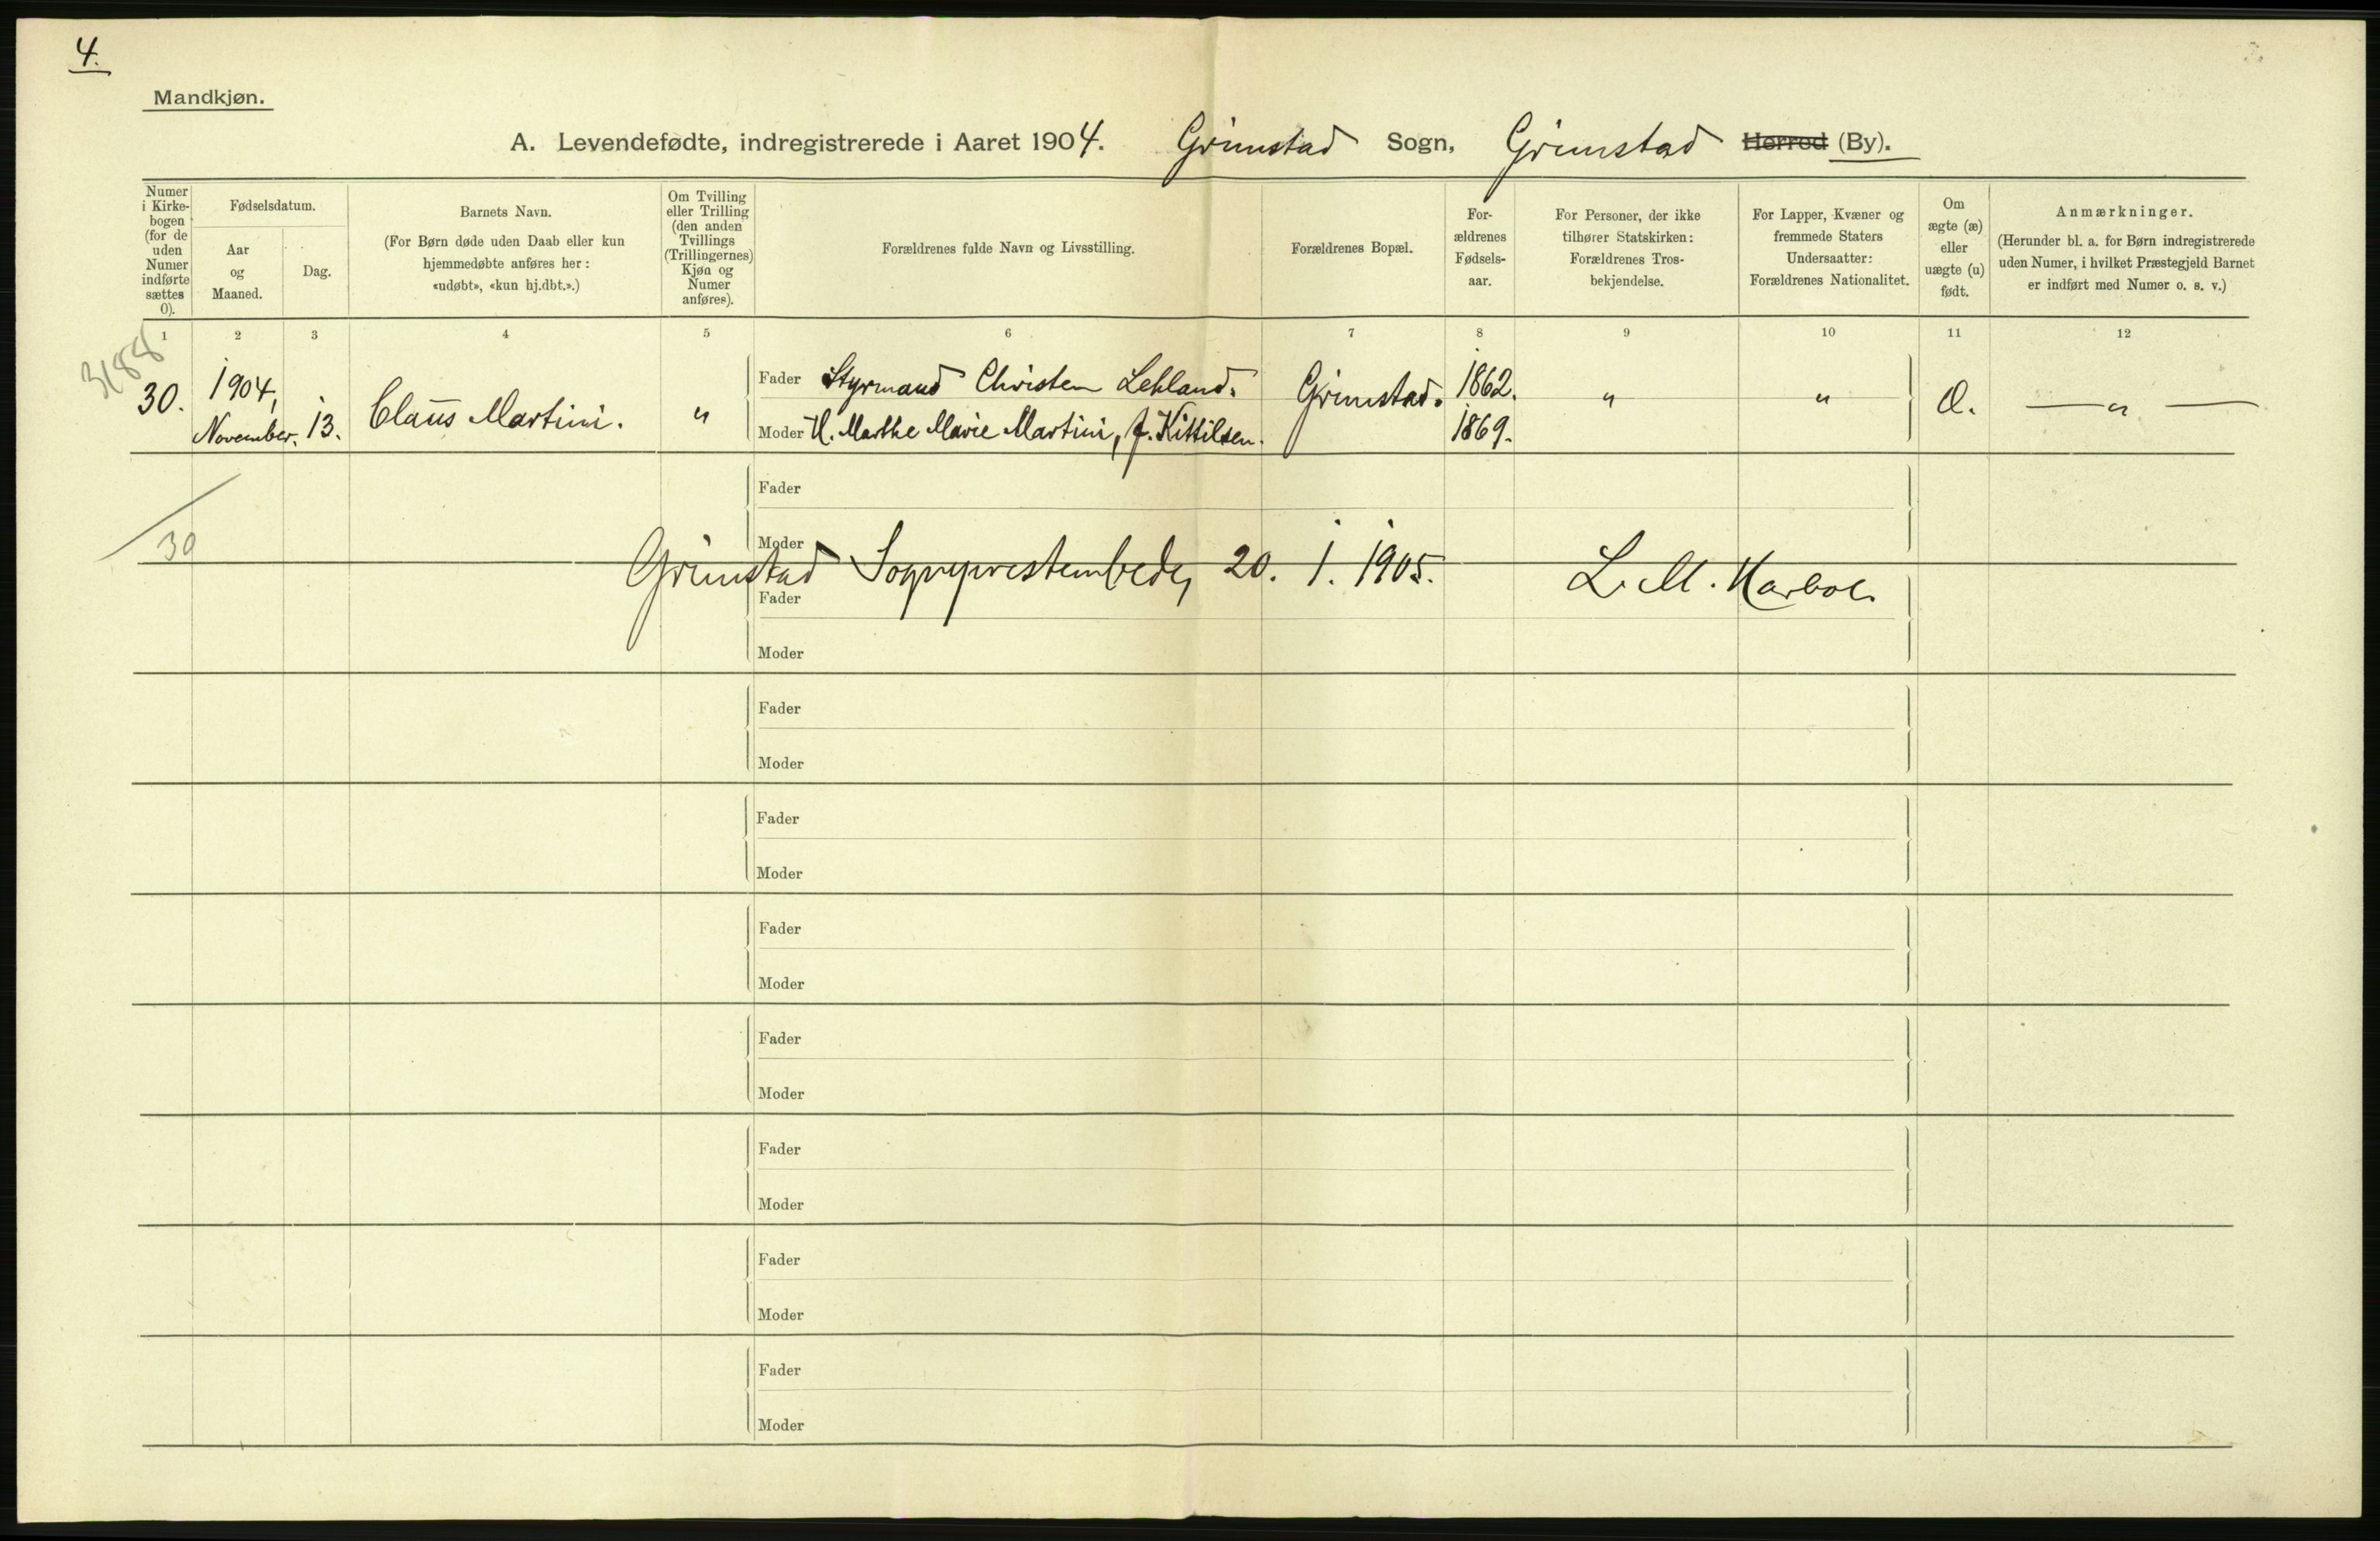 4.
Mandkjøn.
A. Levendefødte, indregistrerede i Aaret 1904. Grimstad Sogn, Grimstad Herred (By).
Numer i Kirkebogen (for de uden Numer indførte sættes 0).
Fødselsdatum.
Aar og Maaned.
Dag.
Barnets Navn.
(For Børn døde uden Daab eller kun
hjemmedøbte anføres her:
«udøbt», «kun hj.dbt.».)
Om Tvilling
eller Trilling
(den anden
Tvillings
(Trillingernes)
Kjøn og
Numer
anføres).
Forældrenes fulde Navn og Livsstilling.
Forældrenes Bopæl.
For-
ældrenes
Fødsels-
aar.
For Personer, der ikke
tilhører Statskirken:
Forældrenes Tros-
bekjendelse.
For Lapper, Kvæner og
fremmede Staters
Undersaatter:
Forældrenes Nationalitet.
Om
ægte (æ)
eller
uægte (u)
født.
Anmærkninger.
(Herunder bl. a. for Børn indregistrerede
uden Numer, i hvilket Præstegjeld Barnet
er indført med Numer o. s. v.)
1 2 3 4 5 6 7 8 9 10 11 12
3188
30. 1904, November. 13. Claus Martini. " Fader Styrmand Christen Lehland. Grimstad. 1862. " " — " —
Moder H. Marthe Marie Martini, f. Kittilsen. 1869.
Fader
30
Moder
Grimstad Sogneprestembede, 20. 1. 1905.
Fader
Moder
Fader
Moder
Fader
Moder
Fader
Moder
Fader
Moder
Fader
Moder
Fader
Moder
Fader
Moder